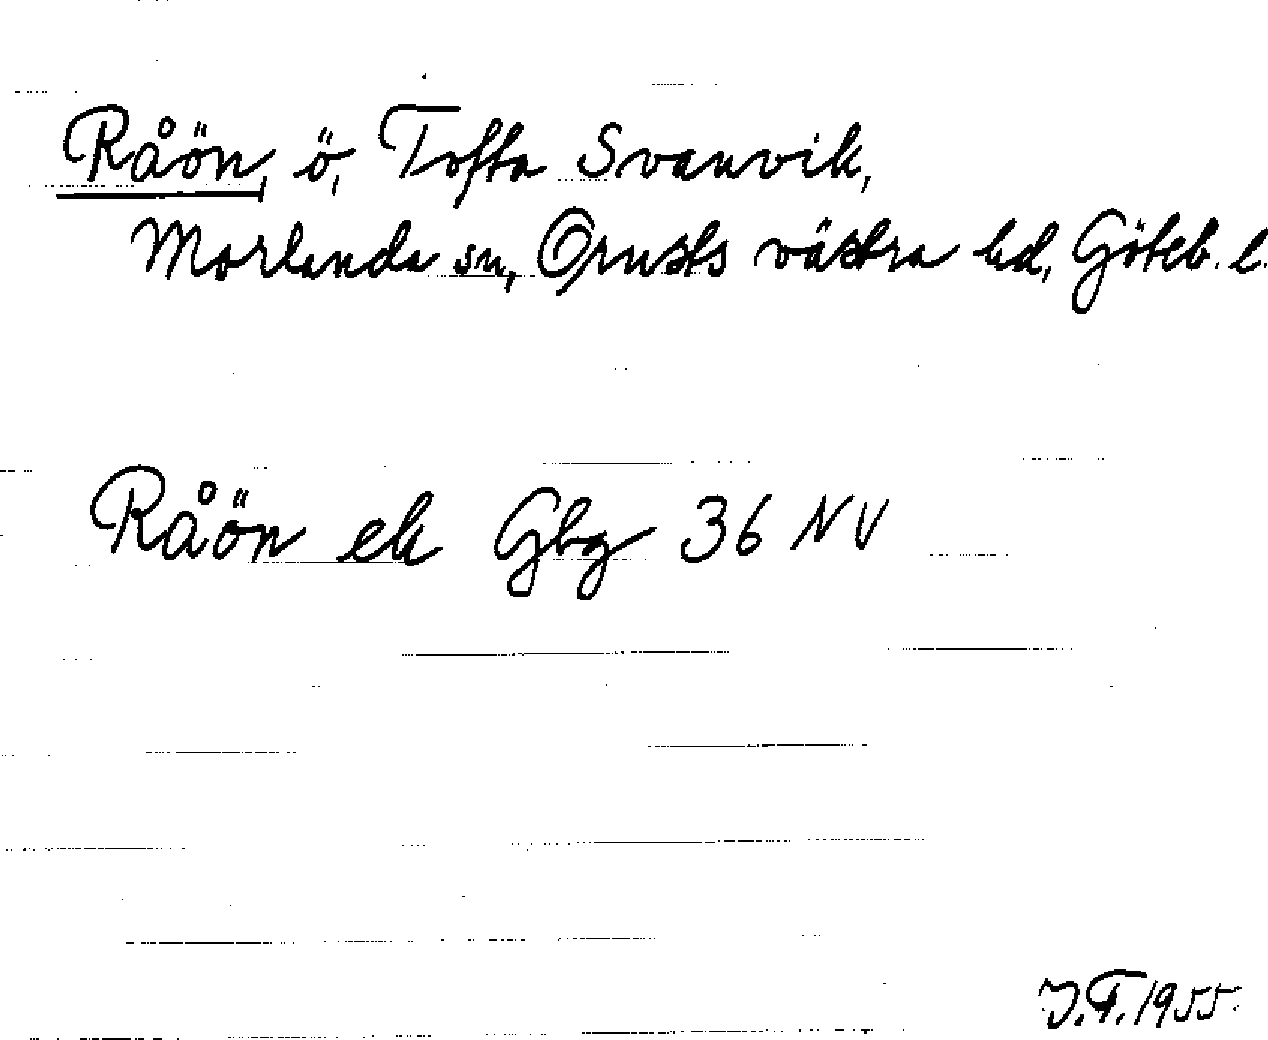 Råön, ö, Tofta Svanvik,
Morlanda sn, Orusts västra hd, Göteb. l.
Råön ek Gbg 36 NV
J.F. 1955.